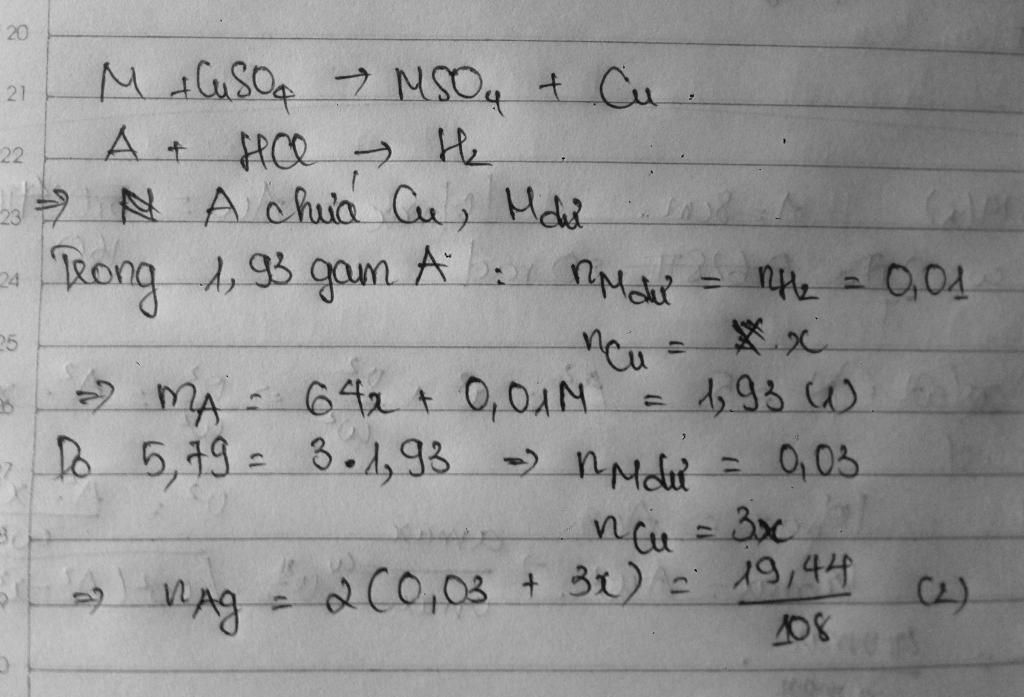 20
21
22
23
24
25
M + CuSO₄ → MSO₄ + Cu.
A + HCl → H₂
⇒ A chứa Cu, M dư
Trong 1,93 gam A : n_M dư = n_H₂ = 0,01
n_Cu = x
⇒ m_A = 64x + 0,01M = 1,93 (1)
Do 5,79 = 3.1,93 ⇒ n_M dư = 0,03
n_Cu = 3x
⇒ n_Ag = 2(0,03 + 3x) = 19,44/108 (2)